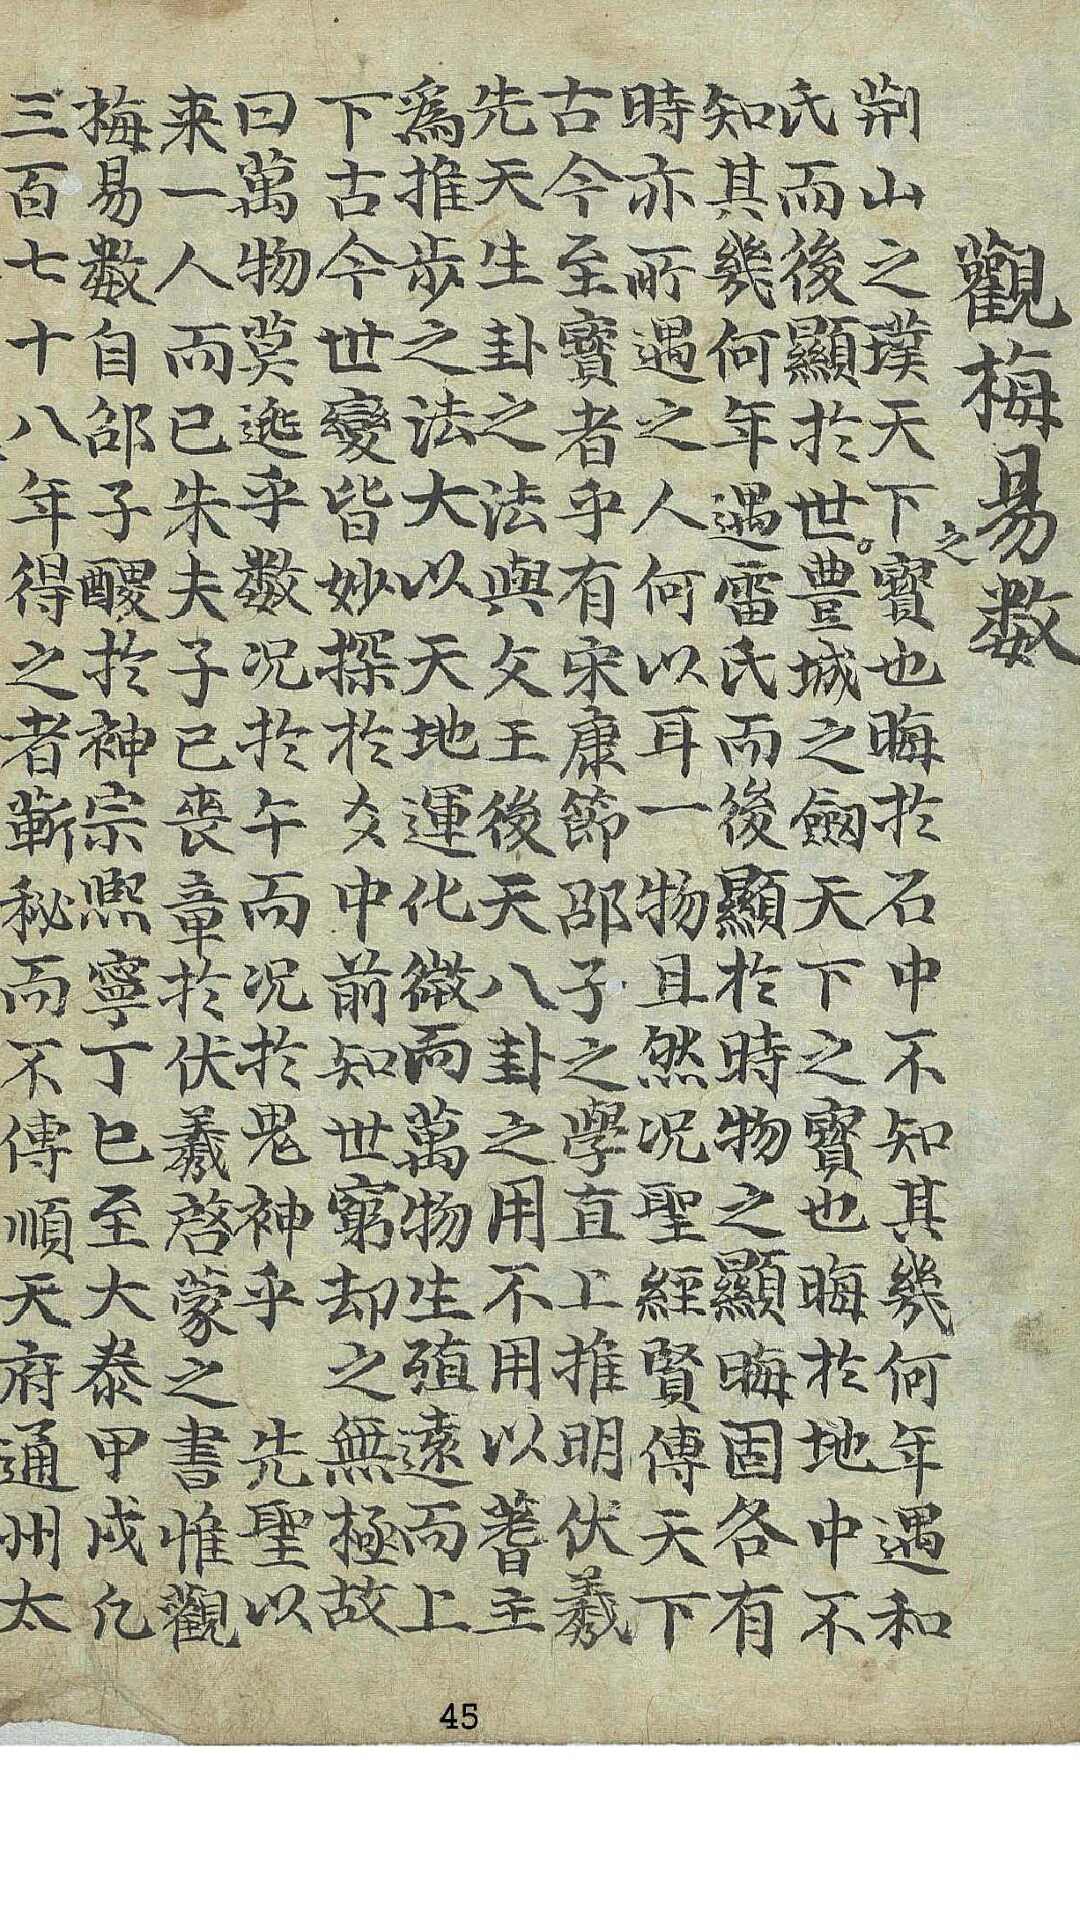 觀梅易数
荆山之璞天下之寳也晦於石中不知其幾何年遇和
氏而後顯於世豊城之劔天下之寳也晦於地中不
知其幾何年遇雷氏而後顯於時物之顯晦固各有
時亦所遇之人何以耳一物且然况聖經賢傳天下
古今至寳者乎有宋康節邵子之學直上推明伏羲
先天生卦之法與文王後天八卦之用不用以蓍主
爲推歩之法大以天地運化微而萬物生殖遠而上
下古今世變皆妙探於爻中前知世窮却之無極故
曰萬物莫逃乎數况於午而况於鬼神乎 先聖以
来一人而已朱夫子已喪章於伏羲啓蒙之書惟觀
梅易數自邵子醿於神宗熙寧丁巳至大泰甲戌仡
三百七十八年得之者蘄秘而不傳順天府通州太
45